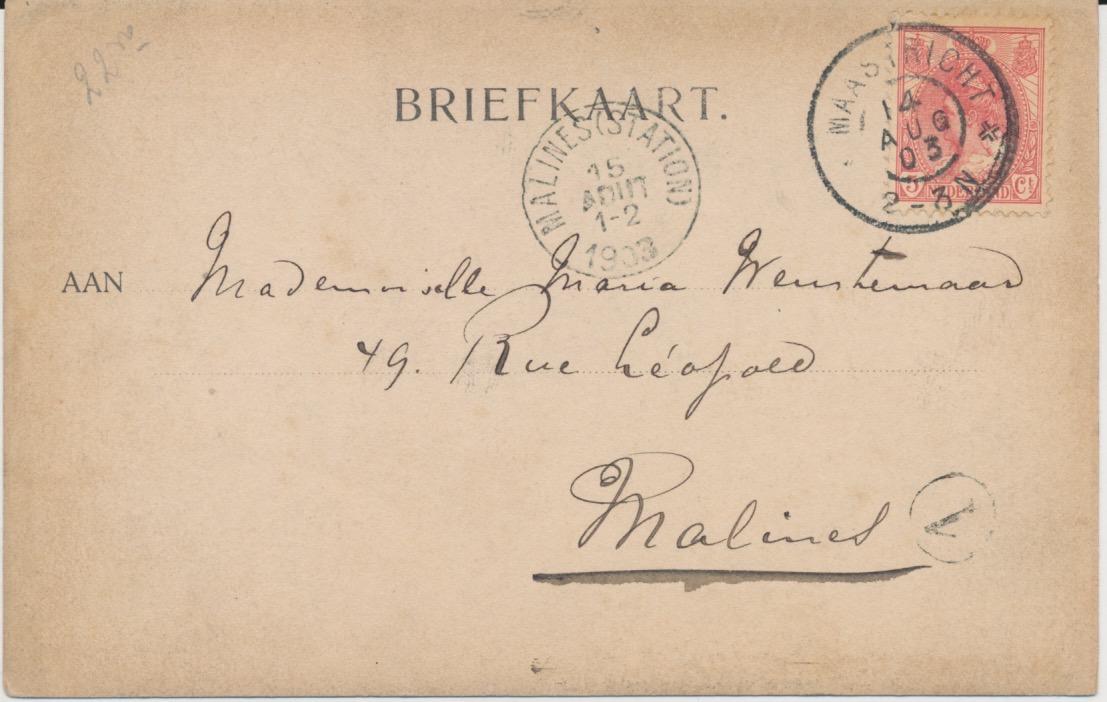 BRIEFKAART.
MAASTRICHT
14
AUG
03
2-3N
5 NEDERLAND Ct
MALINES (STATION)
15
AOUT
1-2
1903
AAN Mademoiselle Maria
49. Rue Léopold
Malines
1